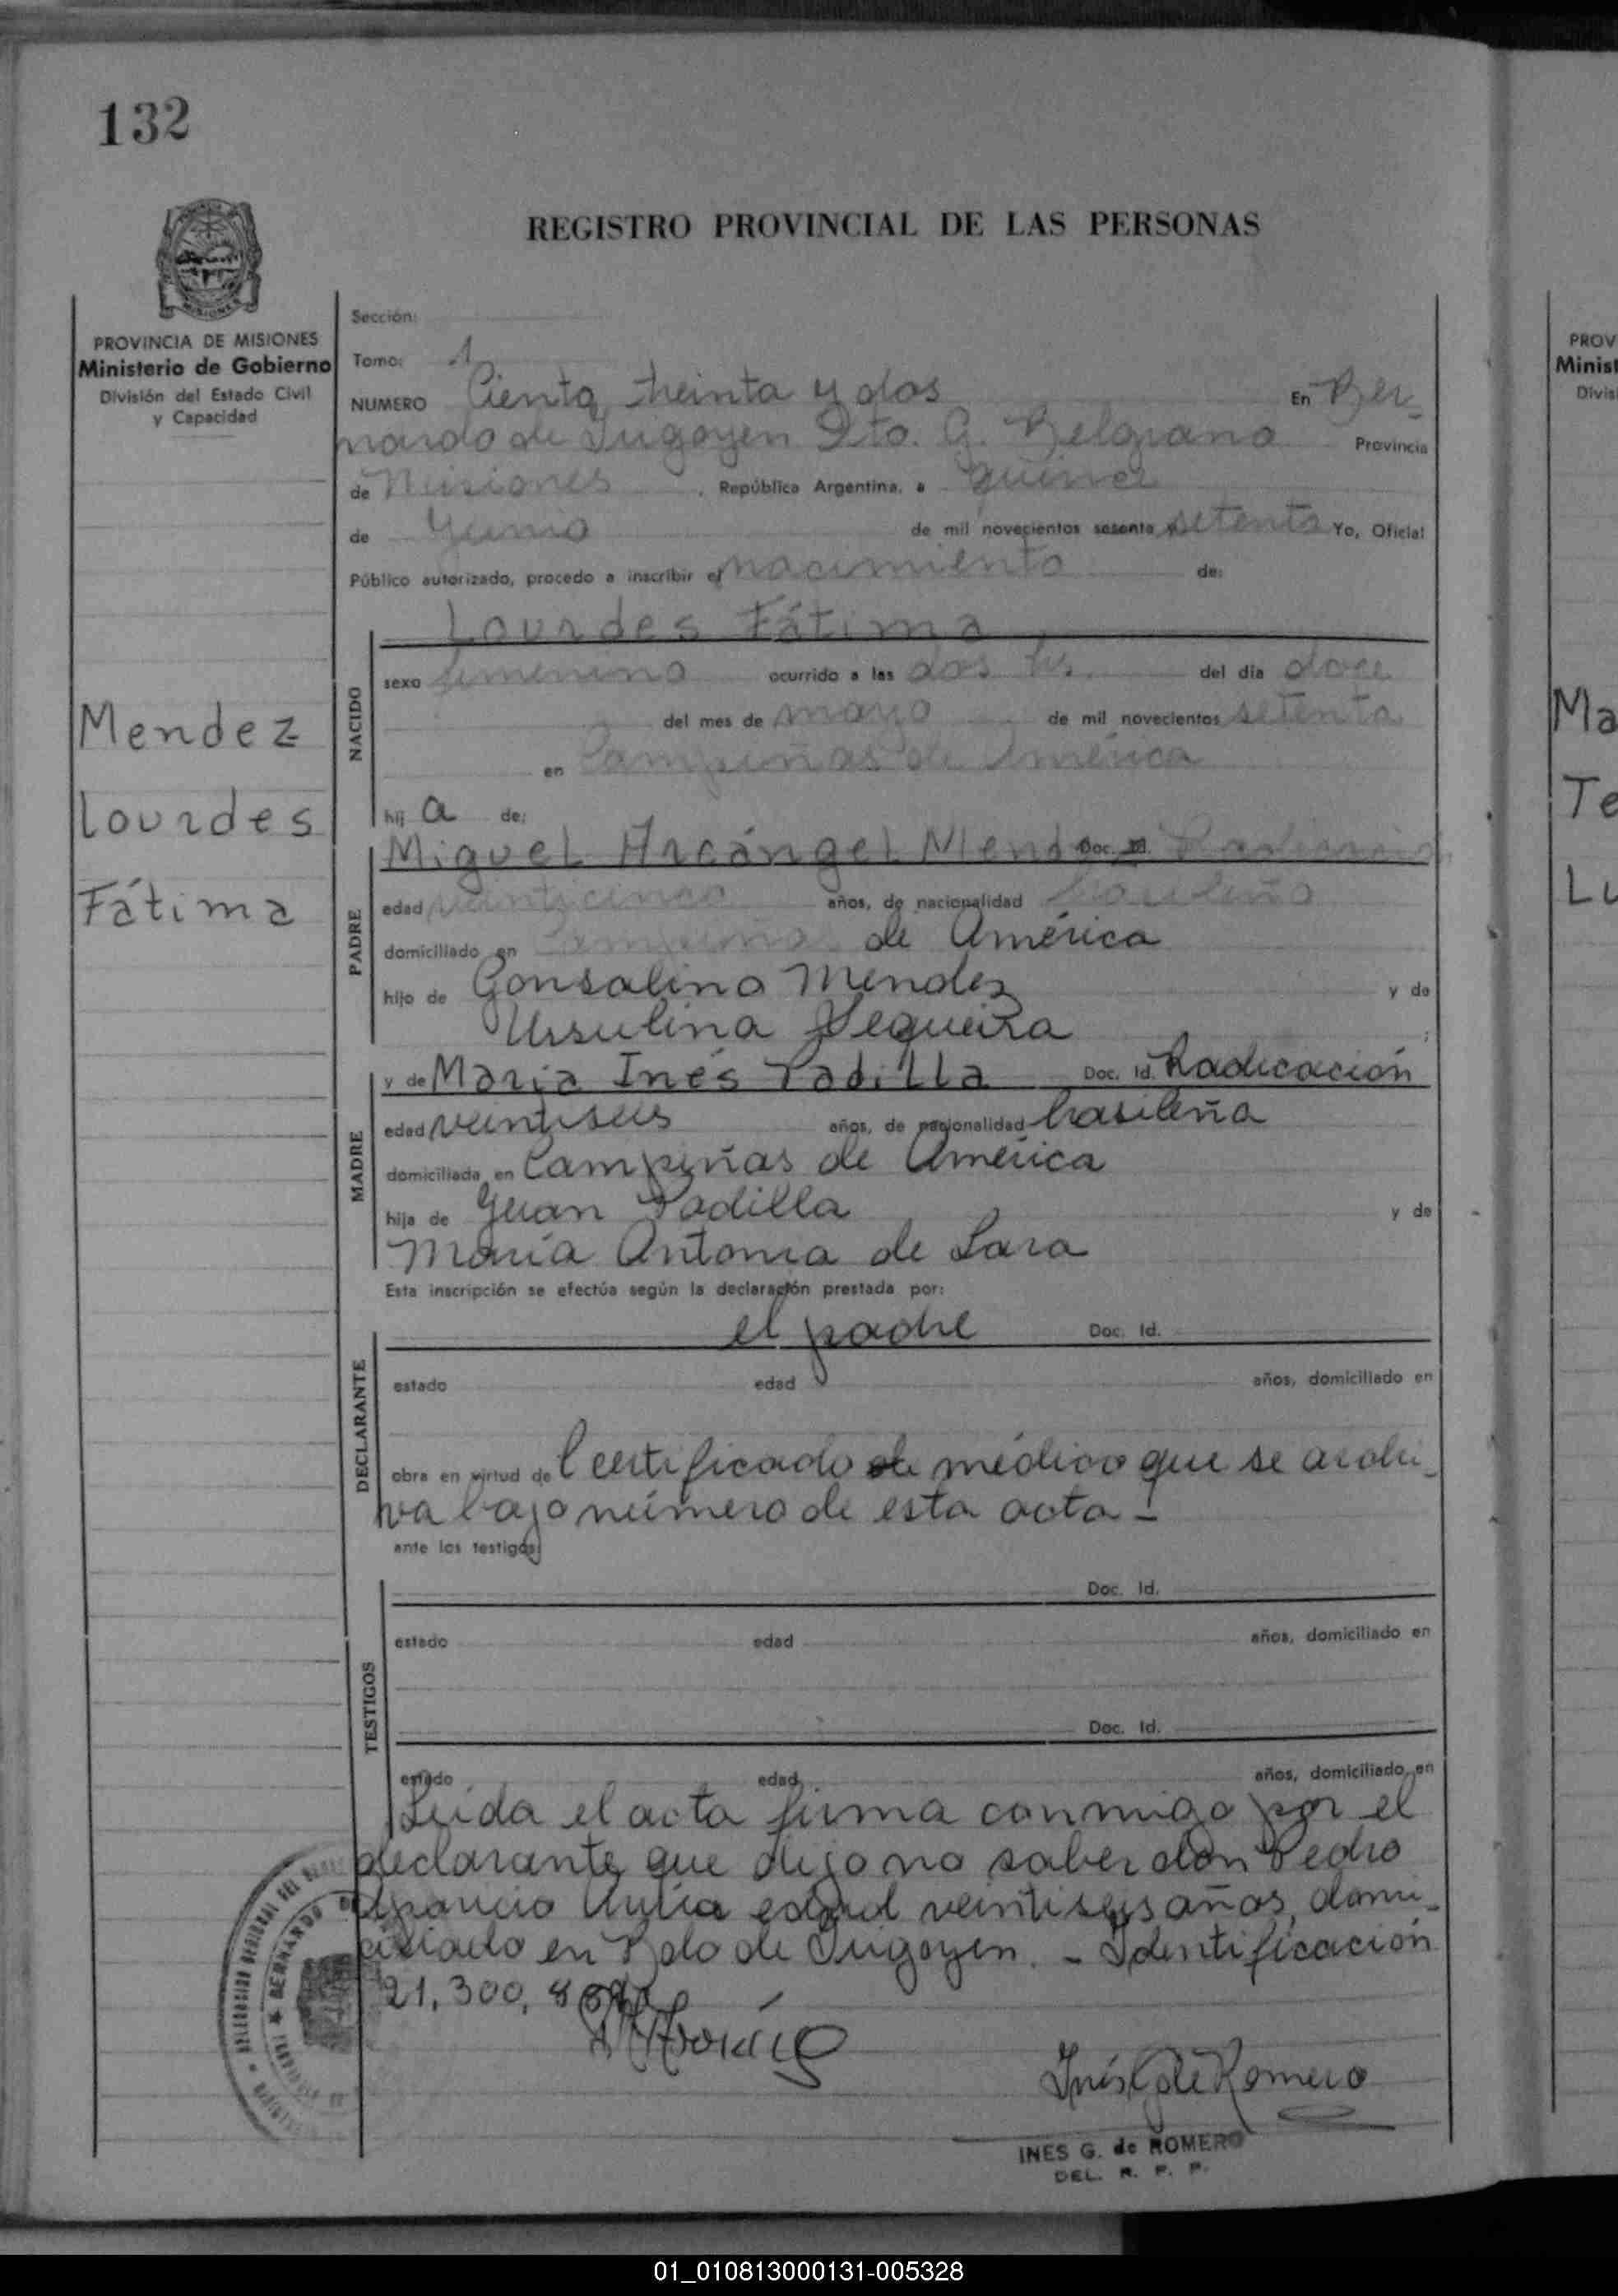 132
REGISTRO PROVINCIAL DE LAS PERSONAS
PROVINCIA DE MISIONES
Ministerio de Gobierno
División del Estado Civil
y Capacidad
Mendez
Lourdes
Fátima
Sección:
Tomo: 1
NUMERO Ciento treinta y dos En Ber-
nardo de Irigoyen Dto. G. Belgrano Provincia
de Misiones, República Argentina, a quince
de Junio de mil novecientos sesenta y setenta Yo, Oficial
Público autorizado, procedo a inscribir el nacimiento de:
Lourdes Fátima
NACIDO
sexo femenino ocurrido a las dos hs. del día doce
del mes de mayo de mil novecientos setenta
en Campiñas de América
hij a de:
PADRE
Miguel Arcángel Mendez Doc. Id. Radicación
edad veinticinco años, de nacionalidad brasileña
domiciliado en Campiñas de América
hijo de Gonsalino Mendez y de
Ursulina Sequeira
MADRE
y de María Inés Padilla Doc. Id. Radicación
edad veintiseis años, de nacionalidad brasileña
domiciliada en Campiñas de América
hija de Juan Padilla y de
María Antonia de Lara
Esta inscripción se efectúa según la declaración prestada por:
DECLARANTE
el padre Doc. Id.
estado edad años, domiciliado en
obra en virtud de Certificado de médico que se archi-
va bajo número de esta acta -
ante los testigos:
TESTIGOS
Doc. Id.
estado edad años, domiciliado en
Doc. Id.
estado edad años, domiciliado en
Leída el acta firma conmigo por el
declarante que dijo no saber don Pedro
edad veintiseis años, domi-
ciliado en Bdo de Irigoyen. - Identificación
21,300,
Inés G de Romero
INES G. de ROMERO
DEL. R. P. P.
BERNARDO
PROV
Minist
Divis
Ma
Te
Lu
01_010813000131-005328